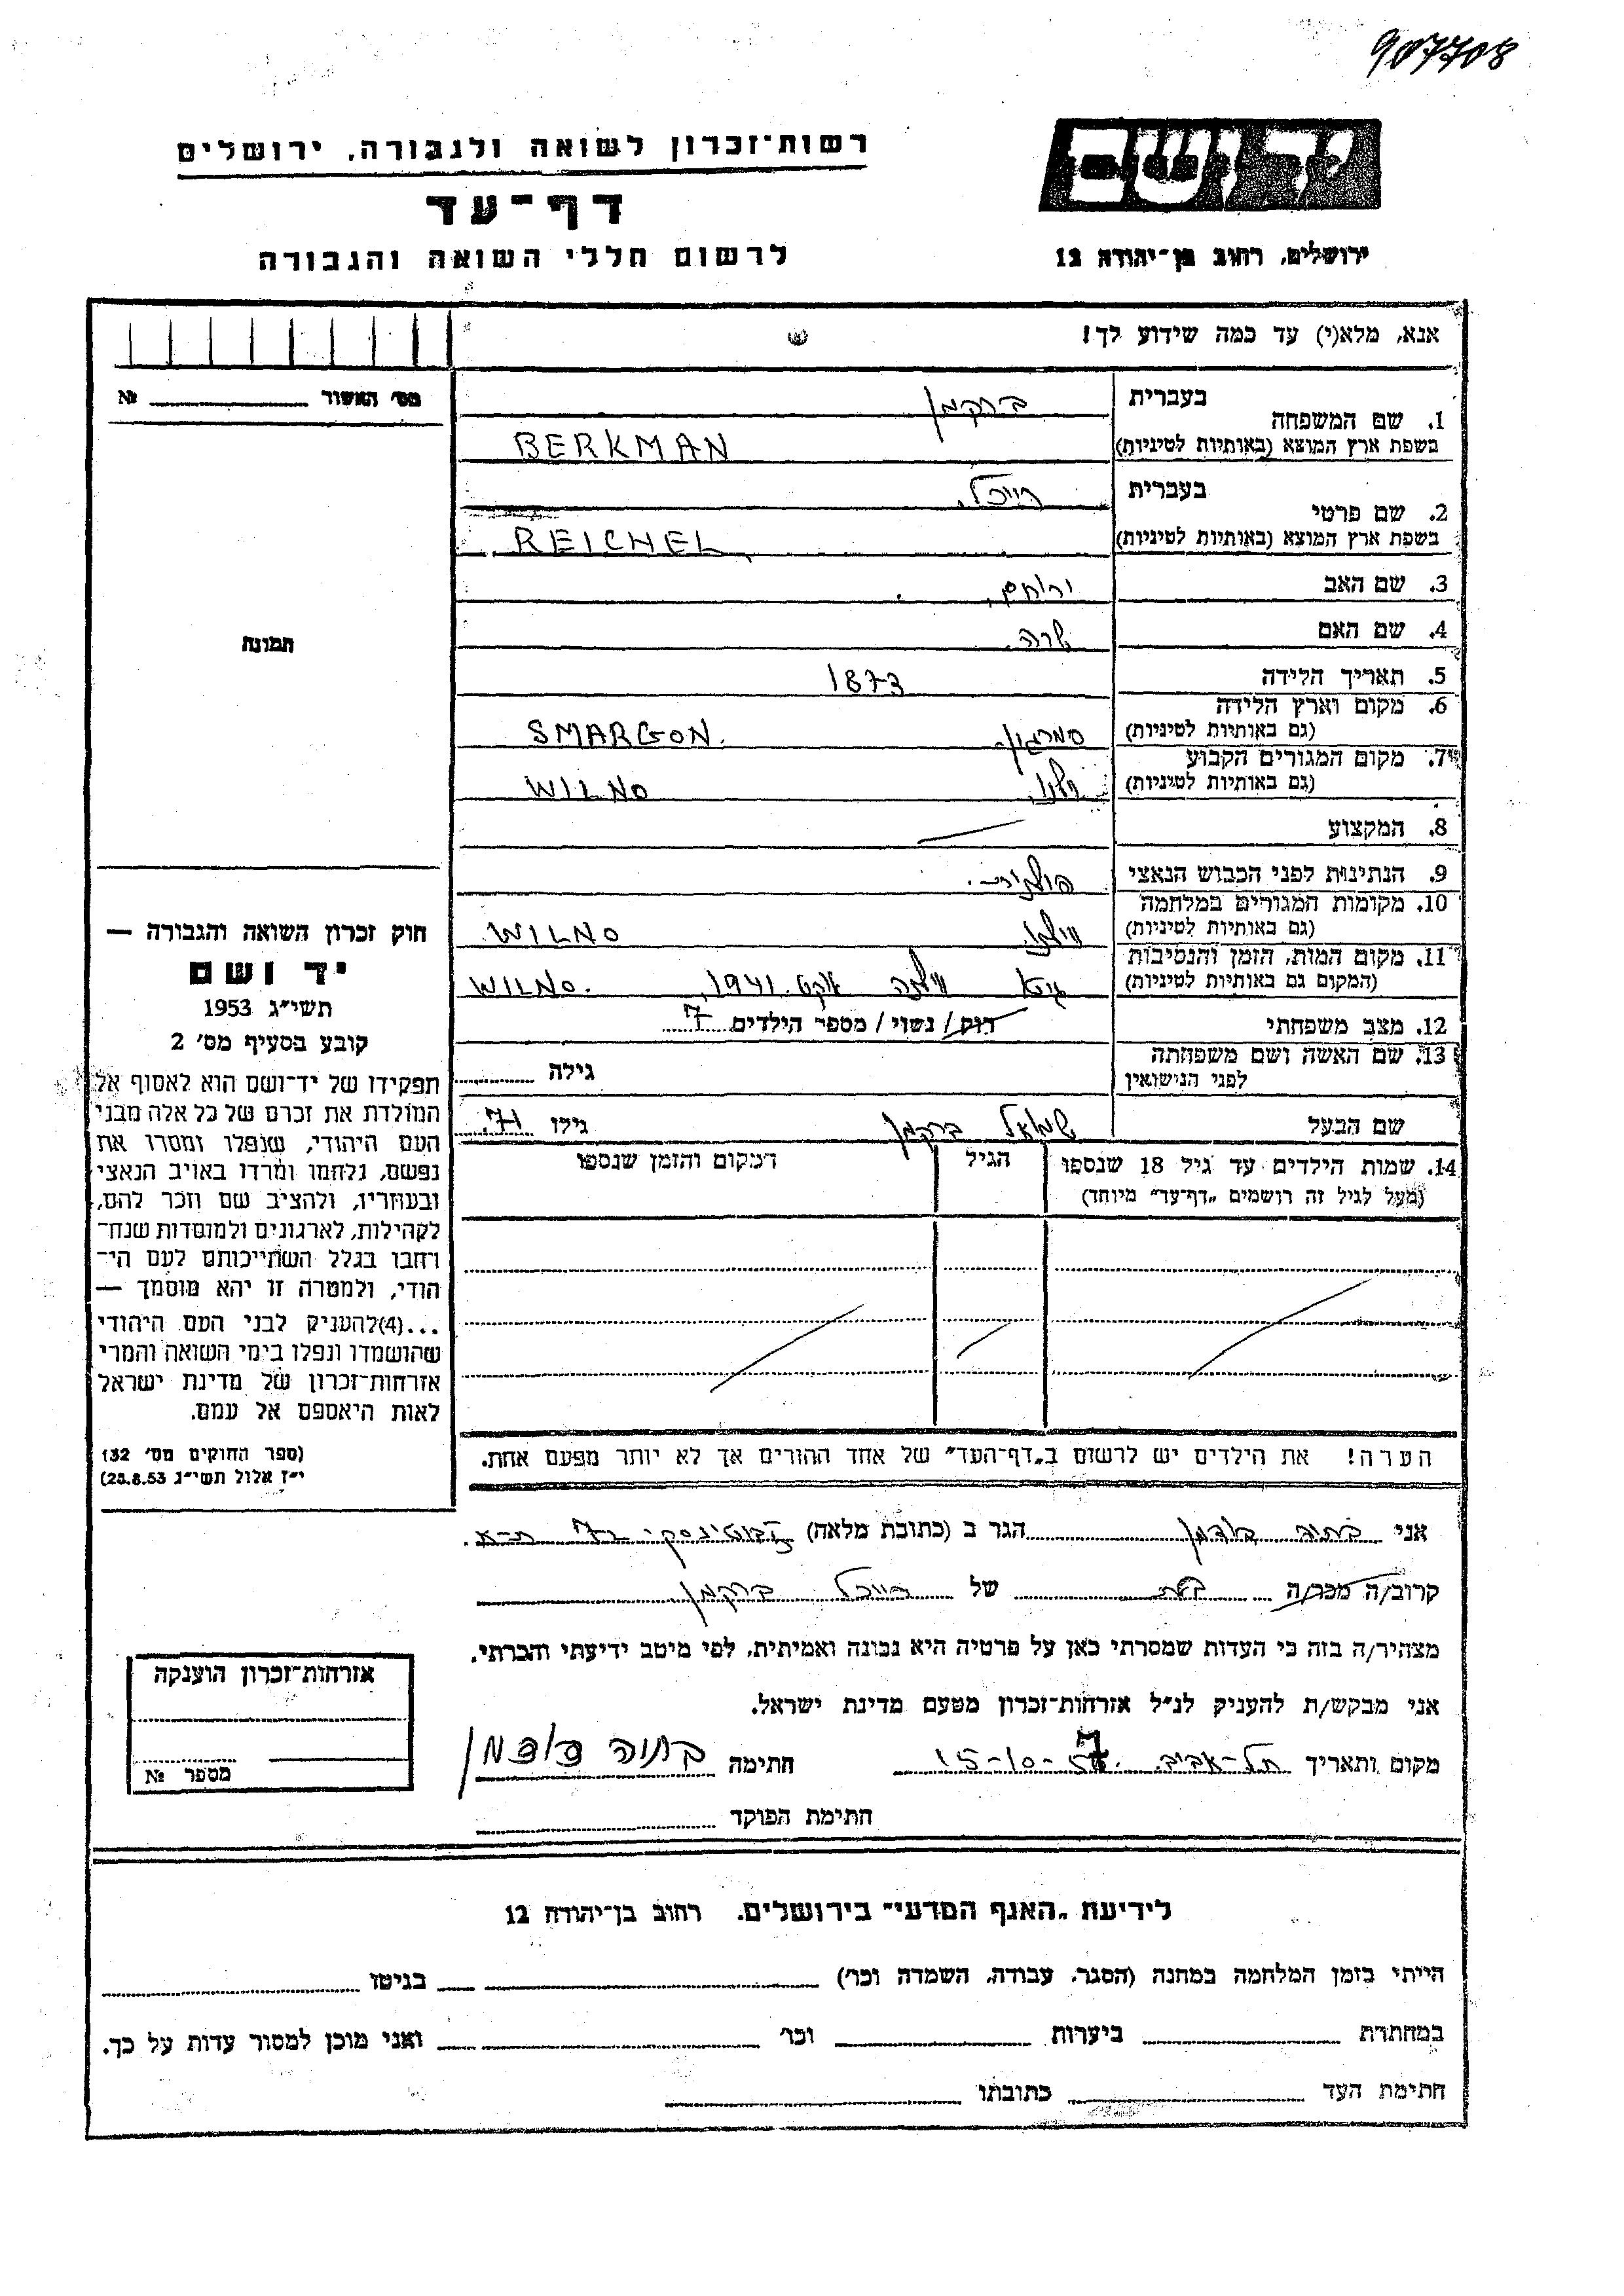 907708
יד ושם
רשות־זכרון לשואה ולגבורה, ירושלים
דף־עד
לרשום חללי השואה והגבורה
ירושלים, רחוב בן־יהודה 12
אנא, מלא(י) עד כמה שידוע לך!
מס׳ האשור № 
תמונה
1. שם המשפחה
בעברית ברקמן
בשפת ארץ המוצא (באותיות לטיניות) BERKMAN
2. שם פרטי
בעברית רייכל
בשפת ארץ המוצא (באותיות לטיניות) REICHEL
3. שם האב ירוחם
4. שם האם שרה
5. תאריך הלידה 1873
6. מקום וארץ הלידה
(גם באותיות לטיניות) סמרגון SMARGON.
7. מקום המגורים הקבוע
(גם באותיות לטיניות) וילנו WILNO
8. המקצוע
9. הנתינות לפני הכבוש הנאצי פולנית.
10. מקומות המגורים במלחמה
(גם באותיות לטיניות) וילנו WILNO
11. מקום המות, הזמן והנסיבות
(המקום גם באותיות לטיניות) גיטו וילנה אוקט. 1941, WILNO.
12. מצב משפחתי רווק / נשוי / מספר הילדים 7
13. שם האשה ושם משפחתה
לפני הנישואין גילה
שם הבעל שמואל ברקמן גילו 71.
14. שמות הילדים עד גיל 18 שנספו הגיל המקום והזמן שנספו
(מעל לגיל זה רושמים „דף־עד״ מיוחד)
הערה! את הילדים יש לרשום ב„דף־העד״ של אחד ההורים אך לא יותר מפעם אחת.
חוק זכרון השואה והגבורה —
יד ושם
תשי״ג 1953
קובע בסעיף מס׳ 2
תפקידו של יד־ושם הוא לאסוף אל
המולדת את זכרם של כל אלה מבני
העם היהודי, שנפלו ומסרו את
נפשם, נלחמו ומרדו באויב הנאצי
ובעוזריו, ולהציב שם וזכר להם,
לקהילות, לארגונים ולמוסדות שנח־
רחבו בגלל השתייכותם לעם הי־
הודי, ולמטרה זו יהא מוסמך —
...(4)להעניק לבני העם היהודי
שהושמדו ונפלו בימי השואה והמרי
אזרחות־זכרון של מדינת ישראל
לאות היאספם אל עמם.
(ספר החוקים מס׳ 132
י״ז אלול תשי״ג 28.8.53)
אני בתיה הגר ב (כתובת מלאה) ז׳בוטינסקי 72 ת־א.
קרוב/ה מכר/ה בת של רייכל ברקמן
מצהיר/ה בזה כי העדות שמסרתי כאן על פרטיה היא נכונה ואמיתית, לפי מיטב ידיעתי והכרתי.
אני מבקש/ת להעניק לנ״ל אזרחות־זכרון מטעם מדינת ישראל.
מקום ותאריך תל־אביב. 15-10-57 חתימה בתיה
חתימת הפוקד
אזרחות־זכרון הוענקה
מספר №
לידיעת „האגף המדעי״ בירושלים. רחוב בן־יהודה 12
הייתי בזמן המלחמה במחנה (הסגר, עבודה, השמדה וכו׳) בגיטו
במחתרת ביערות וכו׳ ואני מוכן למסור עדות על כך.
חתימת העד כתובתו